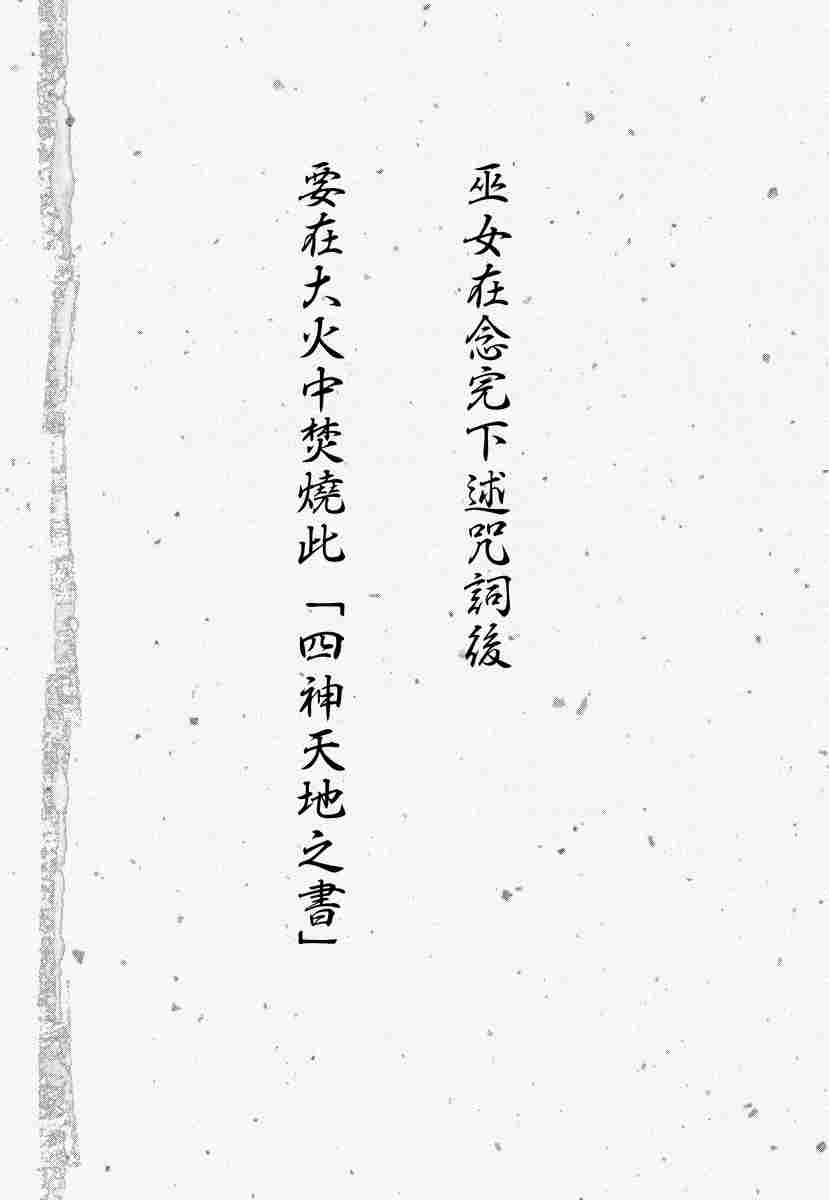 巫女在念完下述咒詞後
要在大火中焚燒此「四神天地之書」